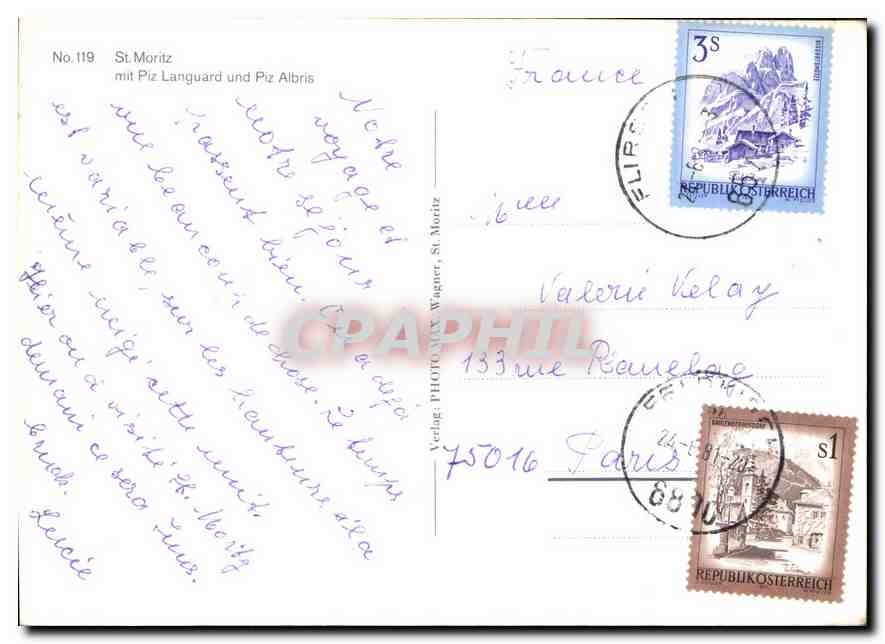 No. 119 St. Moritz
mit Piz Languard und Piz Albris
Notre
voyage et
notre séjour se
passent bien. On a déjà
vue beaucoup de chose. Le temps
est variable, sur les hauteurs il a
même neigé cette nuit.
Hier on a visité St. Moritz
demain ce sera Inns-
bruck. Lucie
Verlag: PHOTO MAX. Wagner, St. Moritz
France
Mlle
Valerie Velay
133 rue Ranelag
75016 Paris
3S
REPUBLIK ÖSTERREICH
FLIRS
S1
REPUBLIK ÖSTERREICH
24.-6.81-20
6800
CPAPHIL